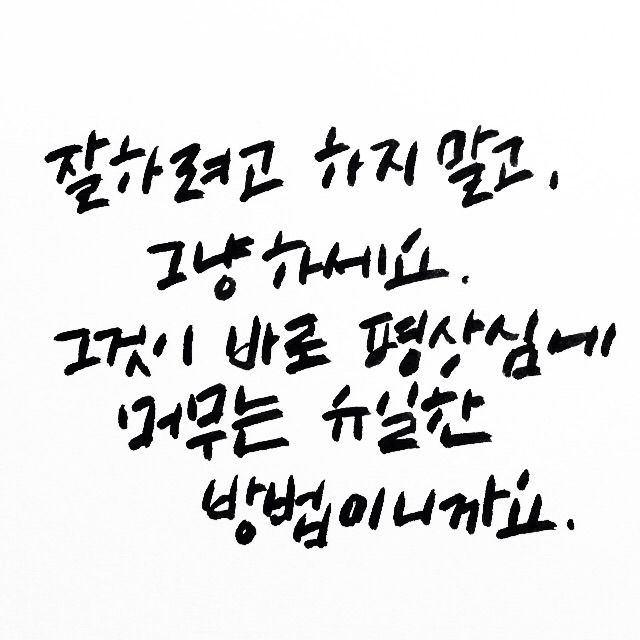 잘하려고 하지 말고,
그냥 하세요.
그것이 바로 평상심에
머무는 유일한
방법이니까요.